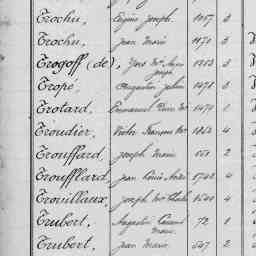 Trochu, Eugène Joseph. 1057 3
Trochu, Jean Marie 1170 3
Trogoff (de), Yves Mie Ange Joseph. 1253 3
Trope, Augustin Julien 1478 3
Trotard, Emmanuel Pierre Mie 1479 1
Troudier, Victor François Mie 1263 4
Trouffard, Joseph Marie 551 2
Troufflard, Jean Louis 1742 4
Trouillaux, Joseph Mie 1540 4
Trubert, Augustin Marie. 72 1
Trubert, Jean Marie 547 2